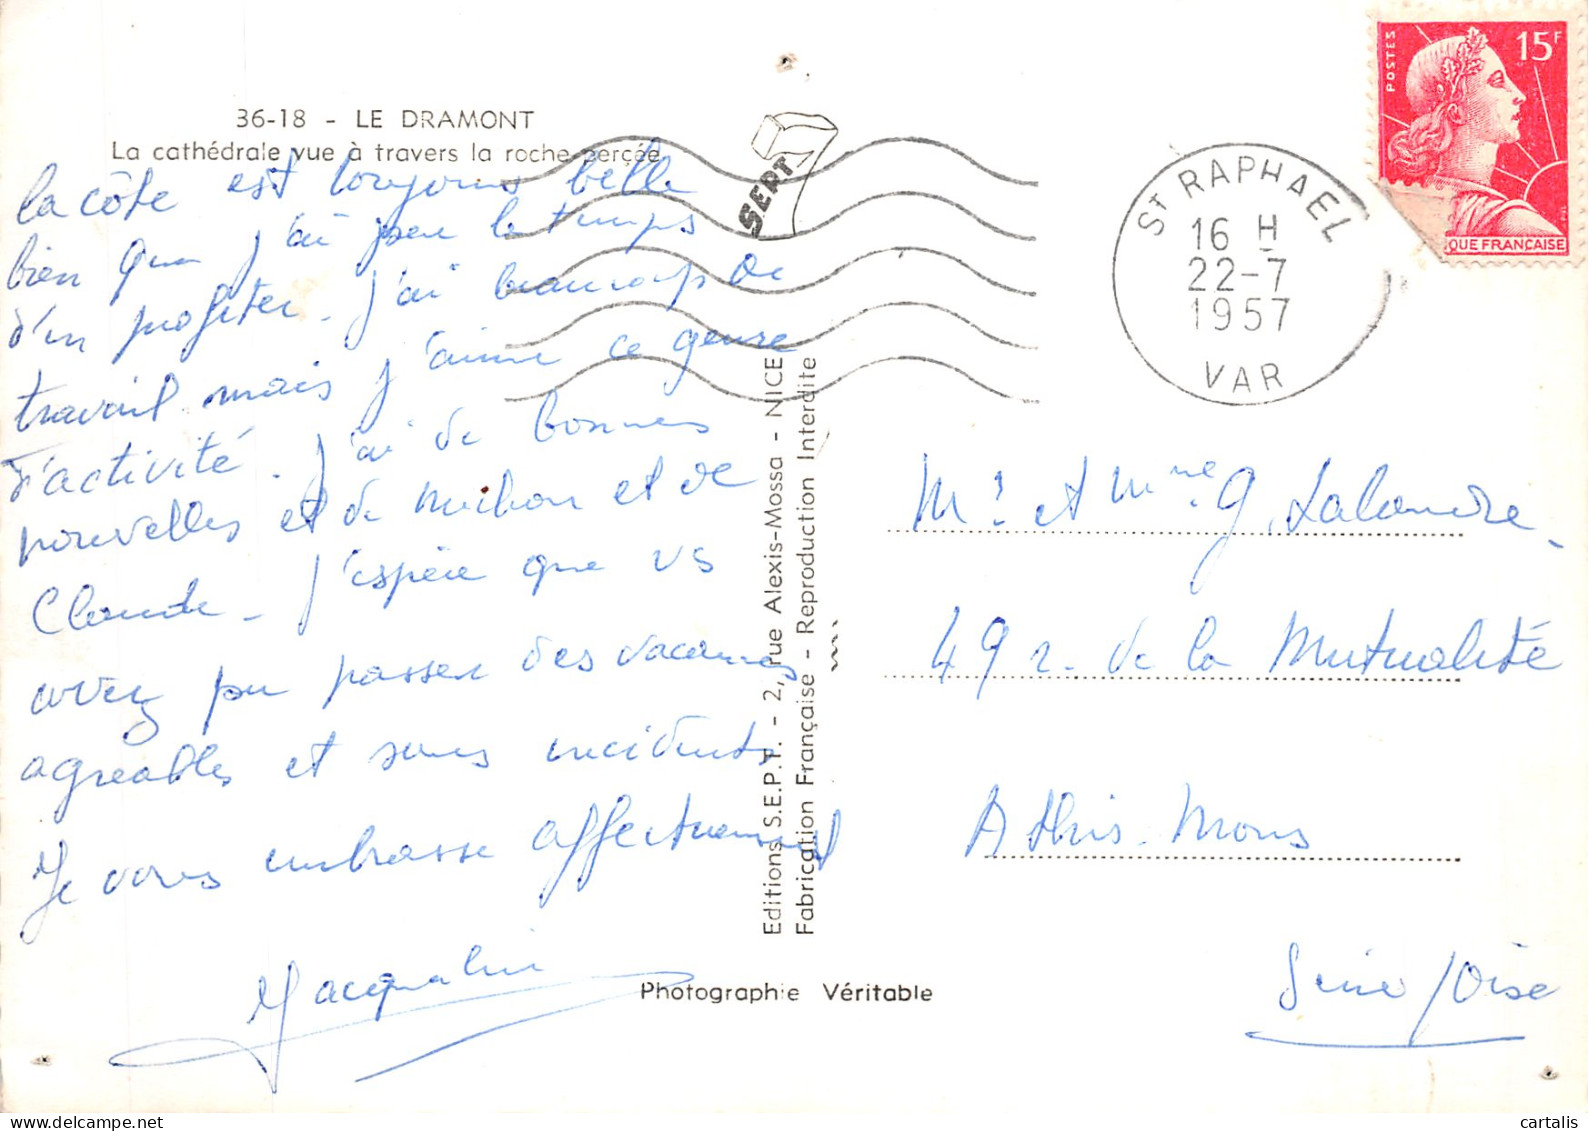 36-18 - LE DRAMONT
La cathédrale vue à travers la roche percée
la côte est toujours belle
bien que j'ai peu le temps
d'en profiter. J'ai beaucoup de
travail mais j'aime ce genre
d'activité. J'ai de bonnes
nouvelles et de et de
Claude - J'espère que vs
avez pu passer des vacances
agreables et sans incidents
Je vous embrasse affectueusement
Jacqueline
SEPT
Editions S.E.P.T. - 2, rue Alexis-Mossa - NICE
Fabrication Française - Reproduction Interdite
Photographie Véritable
POSTES
15F
QUE FRANÇAISE
ST RAPHAEL
16 H
22-7
1957
VAR
Mr et Mme G. Lalandre
49 r. de la Mutualité
Athis-Mons
Seine/Oise
cartalis
delcampe.net